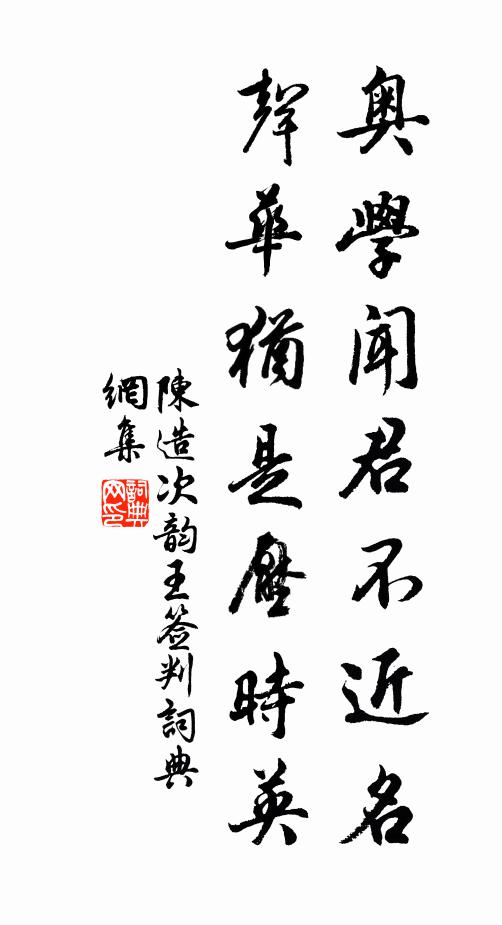 奧學聞君不近名
聲華猶是壓時英
陳造次韵王簽判詞典
網集
詞典網印